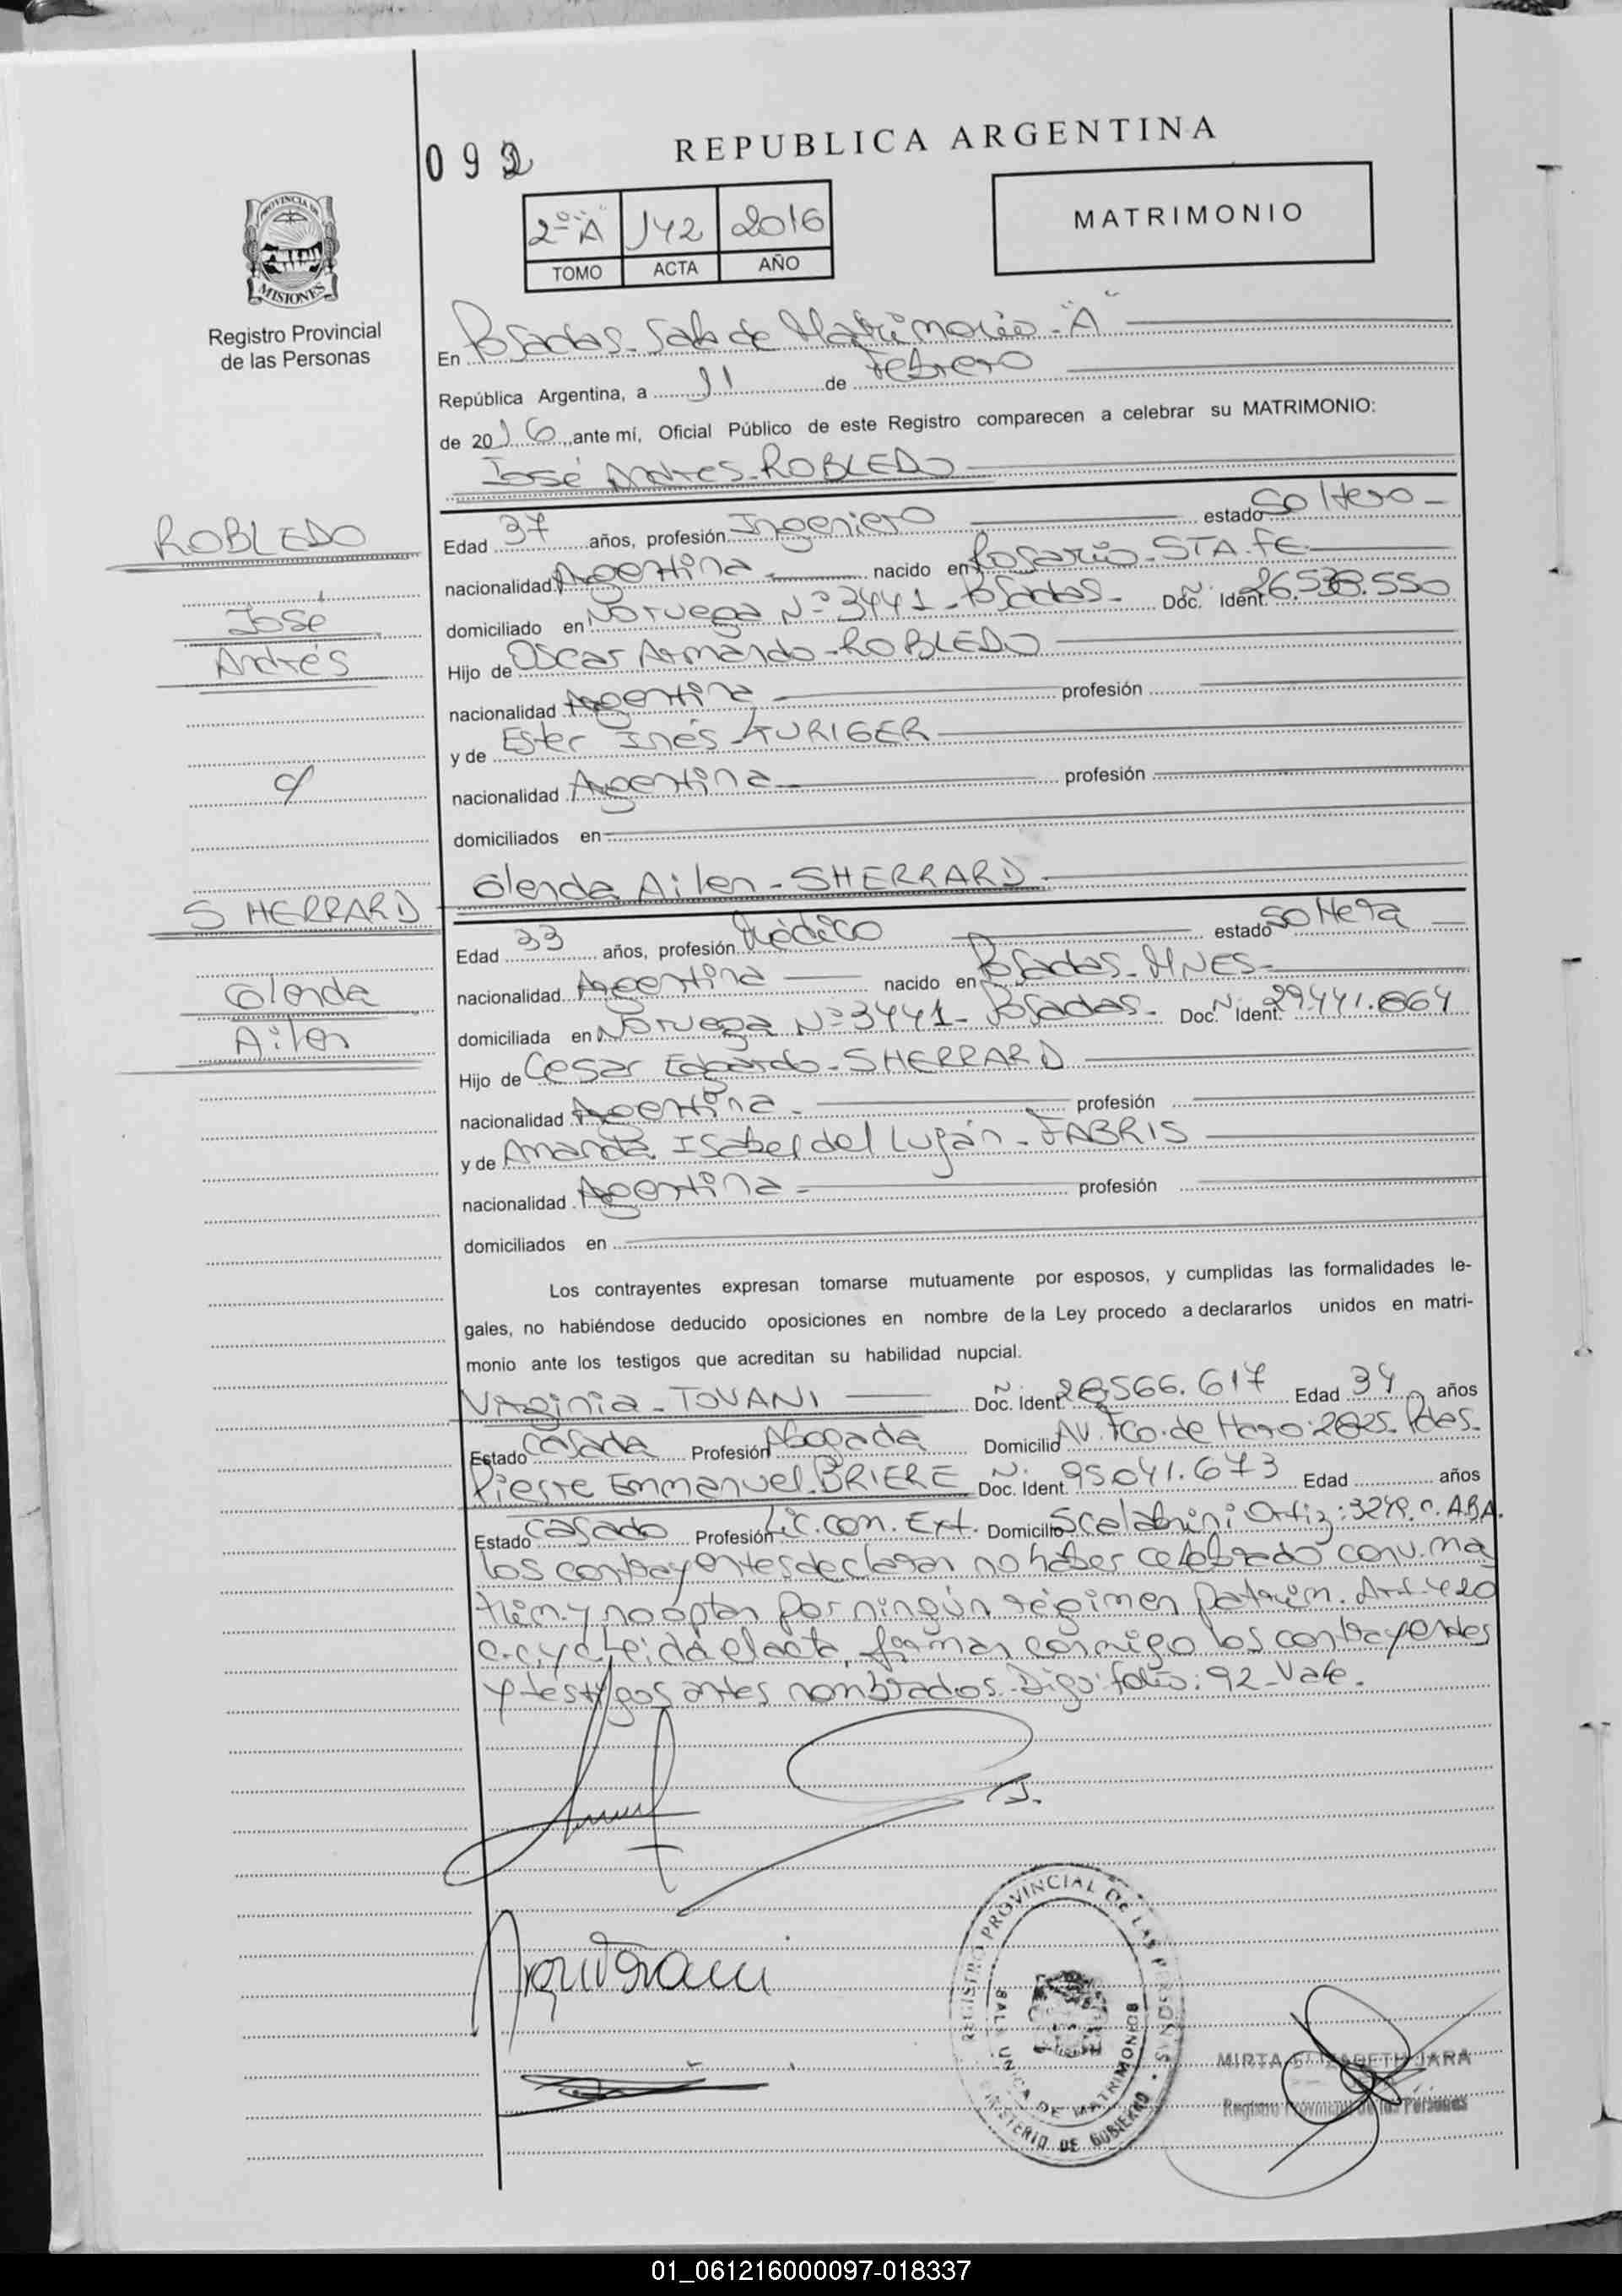 092
REPUBLICA ARGENTINA
2º "A" 142 2016
TOMO ACTA AÑO
MATRIMONIO
PROVINCIA DE
MISIONES
Registro Provincial
de las Personas
En Posadas - Sala de Matrimonio - "A"
República Argentina, a 11 de Febrero
de 2016, ante mí, Oficial Público de este Registro comparecen a celebrar su MATRIMONIO:
José Andrés - ROBLEDO
ROBLEDO
José
Andrés
Edad 37 años, profesión Ingeniero estado Soltero -
nacionalidad Argentina - nacido en Rosario - STA. FE
domiciliado en Noruega Nº 3441 - Posadas - Doc. N. Ident.
Hijo de Oscar Armando - ROBLEDO
nacionalidad Argentina profesión
y de Ester Inés
nacionalidad Argentina profesión
domiciliados en
Glenda Ailen - SHERRARD
y
SHERRARD
Glenda
Ailen
Edad 33 años, profesión Médico estado Soltera
nacionalidad Argentina nacido en Posadas - MNES -
domiciliada en Noruega Nº 3441 - Posadas - Doc. N. Ident. 29.441.864
Hijo de Cesar Edgardo - SHERRARD
nacionalidad Argentina - profesión
y de Amanda Isabel del Luján - FABRIS
nacionalidad Argentina - profesión
domiciliados en
Los contrayentes expresan tomarse mutuamente por esposos, y cumplidas las formalidades le-
gales, no habiéndose deducido oposiciones en nombre de la Ley procedo a declararlos unidos en matri-
monio ante los testigos que acreditan su habilidad nupcial.
Virginia - TOVANI Doc. N. Ident. 28.566.617 Edad 34 años
Estado Casada Profesión Abogada Domicilio AV. Fco. de Haro: 2825 - Pdas.
Pierre Emmanuel - BRIERE Doc. N. Ident. 95.041.673 Edad años
Estado Casado Profesión Lic. com. Ext. Domicilio Scalabrini Ortiz: C. ABA.
Los contrayentes declaran no haber celebrado conv. ma
trim. y no optan por ningún régimen patrim. Art. 420
C.C. y C. Leida el acta, firman conmigo los contrayentes
y testigos antes nombrados. Digo: folio: 92 - Vale.
REGISTRO PROVINCIAL DE LAS PERSONAS
SALA UNICA DE MATRIMONIOS
MINISTERIO DE GOBIERNO
MIRTA ELIZABETH JARA
Registro Provincial de las Personas
01_061216000097-018337